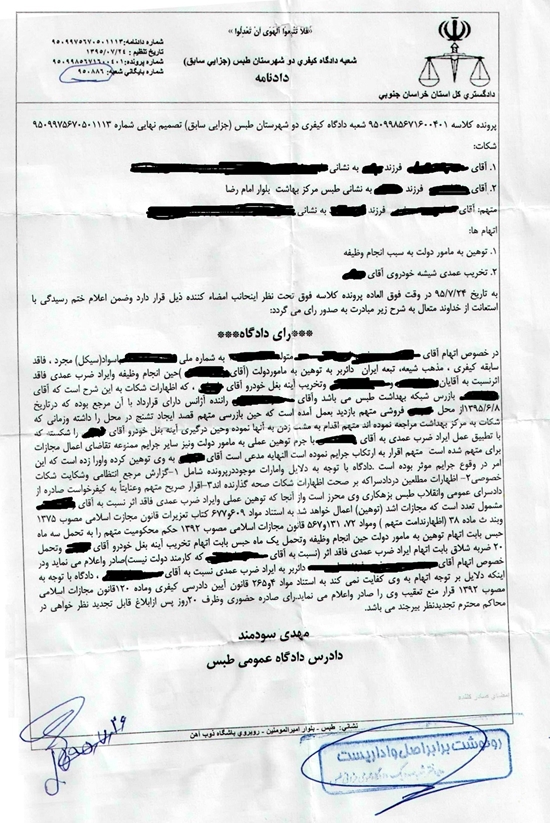 «فَلا تَتَّبِعُوا الْهَوى أَنْ تَعْدِلُوا»
شماره دادنامه: ۹۵۰۹۹۷۵۶۷۰۵۰۱۱۱۳
تاریخ تنظیم: ۱۳۹۵/۰۷/۲۴
شماره پرونده: ۹۵۰۹۹۸۵۶۷۱۶۰۰۴۰۱
شماره بایگانی شعبه: ۹۵۰۸۸۶
شعبه دادگاه کیفری دو شهرستان طبس (جزایی سابق)
دادنامه
دادگستری کل استان خراسان جنوبی
پرونده کلاسه ۹۵۰۹۹۸۵۶۷۱۶۰۰۴۰۱ شعبه دادگاه کیفری دو شهرستان طبس (جزایی سابق) تصمیم نهایی شماره ۹۵۰۹۹۷۵۶۷۰۵۰۱۱۱۳
شکات:
۱. آقای فرزند به نشانی
۲. آقای فرزند به نشانی طبس مرکز بهاشت بلوار امام رضا
متهم: آقای فرزند به نشانی
اتهام ها:
۱. توهین به مامور دولت به سبب انجام وظیفه
۲. تخریب عمدی شیشه خودروی آقای
به تاریخ ۹۵/۷/۲۴ در وقت فوق العاده پرونده کلاسه فوق تحت نظر اینجانب امضاء کننده ذیل قرار دارد وضمن اعلام ختم رسیدگی با
استعانت از خداوند متعال به شرح زیر مبادرت به صدور رای می گردد:
***رای دادگاه***
در خصوص اتهام آقای متولد به شماره ملی باسواد(سیکل) مجرد ، فاقد
سابقه کیفری ، مذهب شیعه، تبعه ایران دائربر به توهین به ماموردولت (آقای )حین انجام وظیفه وایراد ضرب عمدی فاقد
اثرنسبت به آقایان و وتخریب آینه بغل خودرو آقای ، که اظهارات شکات به این شرح است که آقای
بازرس شبکه بهداشت طبس می باشد وآقای راننده آژانس دارای قرارداد با آن مرجع بوده که درتاریخ
۱۳۹۵/۶/۸از محل فروشی متهم بازدید بعمل آمده است که حین بازرسی متهم قصد ایجاد تشنج در محل را داشته وزمانی که
شکات به مرکز بهداشت مراجعه نموده اند متهم اقدام به مشت زدن به آنها نموده وحین درگیری آینه بغل خودرو آقای را شکسته که
با تطبیق عمل ایراد ضرب عمدی به آقای با جرم توهین عملی به مامور دولت ونیز سایر جرایم ممنوعه تقاضای اعمال مجازات
برای متهم شده است متهم اقرار به ارتکاب جرایم نموده است النهایه مدعی است آقای به وی توهین کرده واورا زده است که این
امر در وقوع جرایم موثر بوده است .دادگاه با توجه به دلایل وامارات موجوددرپرونده شامل ۱-گزارش مرجع انتظامی وشکایت شکات
خصوصی۲- اظهارات مطلعین دردادسراکه بر صحت اظهارات شکات صحه گذارده اند۳-اقرار صریح متهم وعنایتاً به کیفرخواست صادره از
دادسرای عمومی وانقلاب طبس بزهکاری وی محرز است واز آنجا که توهین عملی وایراد ضرب عمدی فاقد اثر نسبت به آقای
مشمول تعدد است که مجازات اشد (توهین) اعمال خواهد شد به استناد مواد ۶۰۹و۶۷۷ کتاب تعزیرات قانون مجازات اسلامی مصوب ۱۳۷۵
وبند ث ماده ۳۸ (اظهارندامت متهم ) ومواد ۱۳۱،۷۲و۵۶۷ قانون مجازات اسلامی مصوب ۱۳۹۲ حکم محکومیت متهم را به تحمل سه ماه
حبس بابت اتهام توهین به مامور دولت حین انجام وظیفه وتحمل یک ماه حبس بابت اتهام تخریب آینه بغل خودرو آقای وتحمل
۲۰ ضربه شلاق بابت اتهام ایراد ضرب عمدی فاقد اثر (نسبت به آقای که کارمند دولت نیست)صادر واعلام می نماید ودر
خصوص اتهام آقای دائربر به ایراد ضرب عمدی نسبت به آقای ، دادگاه با توجه به
اینکه دلایل بر توجه اتهام به وی کفایت نمی کند به استناد مواد ۴و۲۶۵ قانون آیین دادرسی کیفری وماده ۱۲۰قانون مجازات اسلامی
مصوب ۱۳۹۲ قرار منع تعقیب وی را صادر واعلام می نماید.رای صادره حضوری وظرف ۲۰روز پس ازابلاغ قابل تجدید نظر خواهی در
محاکم محترم تجدیدنظر بیرجند می باشد.
مهدی سودمند
دادرس دادگاه عمومی طبس
امضای صادر کننده
نشانی: طبس - بلوار امیرالمومنین - روبروی باشگاه ذوب آهن
رونوشت برابر اصل و اداریست